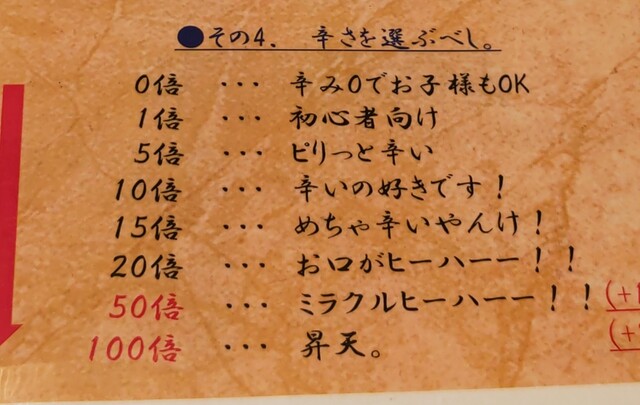 ●その4. 辛さを選ぶべし。
0倍 ・・・ 辛み0でお子様もOK
1倍 ・・・ 初心者向け
5倍 ・・・ ピリっと辛い
10倍 ・・・ 辛いの好きです！
15倍 ・・・ めちゃ辛いやんけ！
20倍 ・・・ お口がヒーハーー！！
50倍 ・・・ ミラクルヒーハーー！！(+
100倍 ・・・ 昇天。(+